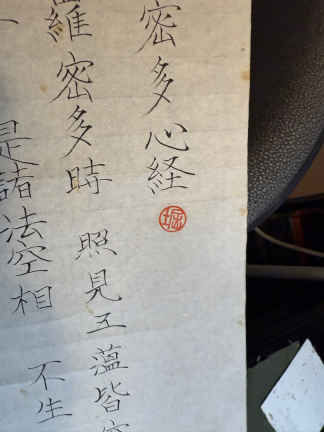 密多心経
羅密多時 照見五蘊皆空
是諸法空相 不生